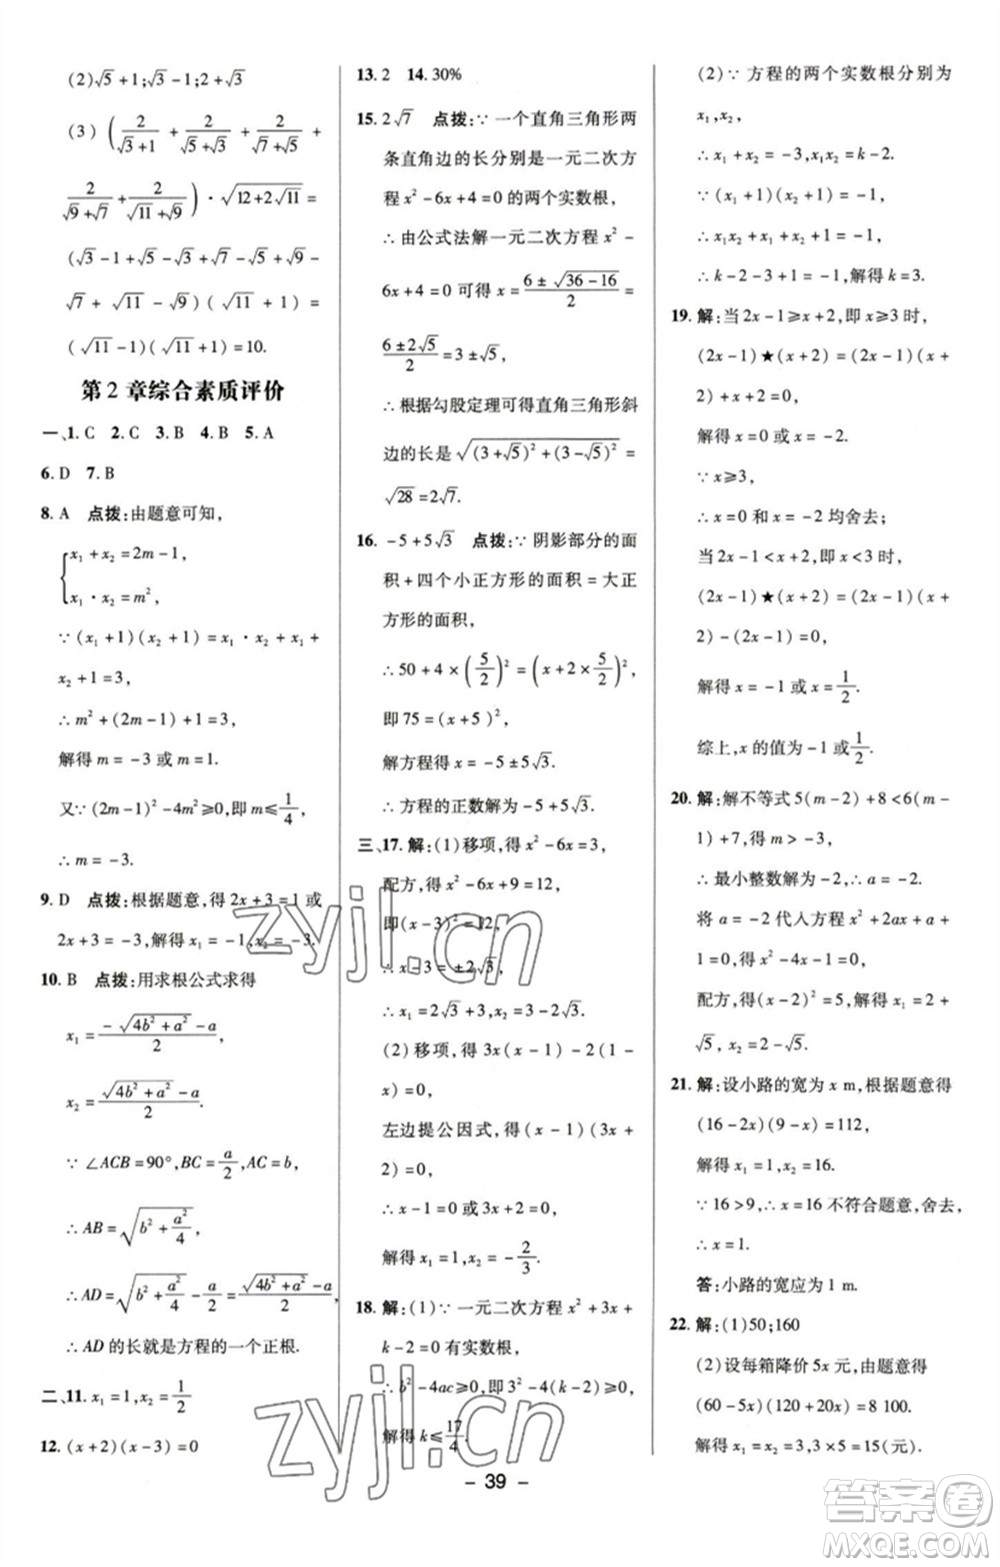 (2)√5+1;√3-1;2+√3
(3)(2/(√3+1)+2/(√5+√3)+2/(√7+√5)+
2/(√9+√7)+2/(√11+√9))·√(12+2√11)=
(√3-1+√5-√3+√7-√5+√9-
√7+√11-√9)(√11+1)=
(√11-1)(√11+1)=10.
第2章综合素质评价
一、1.C 2.C 3.B 4.B 5.A
6.D 7.B
8.A 点拨:由题意可知,
{x₁+x₂=2m-1,
x₁·x₂=m²,
∵(x₁+1)(x₂+1)=x₁·x₂+x₁+
x₂+1=3,
∴m²+(2m-1)+1=3,
解得m=-3或m=1.
又∵(2m-1)²-4m²≥0,即m≤1/4,
∴m=-3.
9.D 点拨:根据题意,得2x+3=1或
2x+3=-3,解得x₁=-1,x₂=-3.
10.B 点拨:用求根公式求得
x₁=(-√(4b²+a²)-a)/2,
x₂=(√(4b²+a²)-a)/2.
∵∠ACB=90°,BC=a/2,AC=b,
∴AB=√(b²+a²/4),
∴AD=√(b²+a²/4)-a/2=(√(4b²+a²)-a)/2,
∴AD的长就是方程的一个正根.
二、11.x₁=1,x₂=1/2
12.(x+2)(x-3)=0
13.2 14.30%
15.2√7 点拨:∵一个直角三角形两
条直角边的长分别是一元二次方
程x²-6x+4=0的两个实数根,
∴由公式法解一元二次方程x²-
6x+4=0可得x=(6±√(36-16))/2=
(6±2√5)/2=3±√5,
∴根据勾股定理可得直角三角形斜
边的长是√((3+√5)²+(3-√5)²)=
√28=2√7.
16.-5+5√3 点拨:∵阴影部分的面
积+四个小正方形的面积=大正
方形的面积,
∴50+4×(5/2)²=(x+2×5/2)²,
即75=(x+5)²,
解方程得x=-5±5√3.
∴方程的正数解为-5+5√3.
三、17.解:(1)移项,得x²-6x=3,
配方,得x²-6x+9=12,
即(x-3)²=12,
∴x-3=±2√3,
∴x₁=2√3+3,x₂=3-2√3.
(2)移项,得3x(x-1)-2(1-
x)=0,
左边提公因式,得(x-1)(3x+
2)=0,
∴x-1=0或3x+2=0,
解得x₁=1,x₂=-2/3.
18.解:(1)∵一元二次方程x²+3x+
k-2=0有实数根,
∴b²-4ac≥0,即3²-4(k-2)≥0,
解得k≤17/4.
(2)∵方程的两个实数根分别为
x₁,x₂,
∴x₁+x₂=-3,x₁x₂=k-2.
∵(x₁+1)(x₂+1)=-1,
∴x₁x₂+x₁+x₂+1=-1,
∴k-2-3+1=-1,解得k=3.
19.解:当2x-1≥x+2,即x≥3时,
(2x-1)★(x+2)=(2x-1)(x+
2)+x+2=0,
解得x=0或x=-2.
∵x≥3,
∴x=0和x=-2均舍去;
当2x-1<x+2,即x<3时,
(2x-1)★(x+2)=(2x-1)(x+
2)-(2x-1)=0,
解得x=-1或x=1/2.
综上,x的值为-1或1/2.
20.解:解不等式5(m-2)+8<6(m-
1)+7,得m>-3,
∴最小整数解为-2,∴a=-2.
将a=-2代入方程x²+2ax+a+
1=0,得x²-4x-1=0,
配方,得(x-2)²=5.解得x₁=2+
√5,x₂=2-√5.
21.解:设小路的宽为x m,根据题意得
(16-2x)(9-x)=112,
解得x₁=1,x₂=16.
∵16>9,∴x=16不符合题意,舍去,
∴x=1.
答:小路的宽应为1 m.
22.解:(1)50;160
(2)设每箱降价5x元,由题意得
(60-5x)(120+20x)=8 100.
解得x₁=x₂=3,3×5=15(元).
- 39 -
zyjl.cn
zyjl.cn
答案圈
MXQE.COM